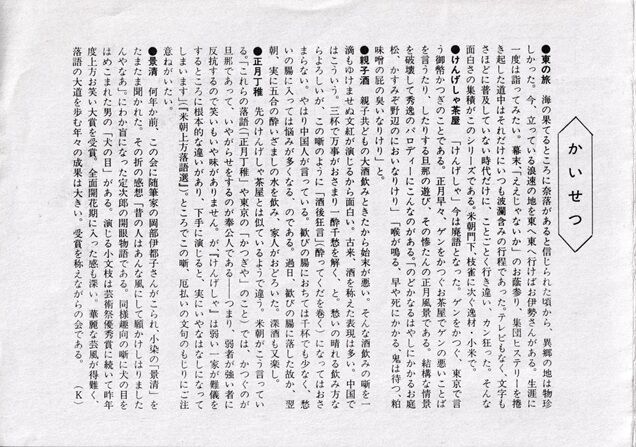 かいせつ
●東の旅　海の果てるところに奈落があると信じられた頃から、異郷の地は物珍
しかった。今、立っている浪速の地を東へ東へ行けばお伊勢さんがある。生涯に
一度は詣ってみたい。幕末「ええじゃないか」のお蔭参り、集団ヒステリーを捲
き起した道中はそれだけにいつも波瀾含みの行程であった。テレビもなく、文字も
さほどに普及していない時代だけに、ことごとく行き違い、カン狂った。そんな
面白さの集積がこのシリーズである。米朝門下、枝雀に次ぐ逸材・小米で。
●けんげしゃ茶屋　「けんげしゃ」今は廃語となった。ゲンをかつぐ、東京で言
う御幣かつぎのことである。正月早々、ゲンをかつぐお茶屋でゲンの悪いことば
を言うたり、したりする旦那の遊び、その惨たんの正月風景である。結構な情景
を破壊して秀逸のパロディーにこんなのがある。「のどかなるはやしにかかるお庭
松、かすみぞ野辺のにおいなりけり」「喉が鳴る、早や死にかかる、鬼は待つ、粕
味噌の屁の臭いなりけり」と。
●親子酒　親子共どもの大酒飲みときたから始末が悪い。そんな酒飲みの噺を一
滴もゆけませぬ文紅が演じるから面白い。古来、酒を称えた表現は多い。中国で
はこういう。三杯で万事がおさまり一酔千愁を解く、と。愁いの晴れる飲み方な
らよろしいが、この噺のように「酒後狂言」（酔ってくだを巻く）になってはおさ
まらない。やはり中国人が言っている。歓びの腸におちては千杯でも少なく、愁
いの腸に入っては悩みが多くなる、のである。過日、歓びの腸に落した故か、翌
朝、実に五合の酔いざましの水を飲み、家人がおどろいた。深酒も又楽し。
●正月丁稚　先のけんげしゃ茶屋とは似ているようで違う。米朝がこう言ってい
る。「これらの落語（『正月丁稚』や東京の『かつぎや』のこと）では、かつぐのが
旦那であって、いやがらせをするのが奉公人である——つまり、弱者が強い者に
反抗するので笑いもいや味がありません。が『けんげしゃ』は弱い一家が難儀を
するところに根本的な違いがあり、下手に演じると、実にいやなはなしになって
しまいます」（『米朝上方落語選』）ところでこの噺、厄払いの文句のもじりにご注
意ねがいたい。
●景清　何年か前、この会に随筆家の岡部伊都子さんがこられ、小染の「景清」を
たまたま聞かれた。その折の感想「昔の人はあんな風にして願かけしはりました
んやなあ」。にわか盲になった定次郎の開眼物語である。同様趣向の噺に犬の目を
はめこまれた男の「犬の目」がある。演じる小文枝は芸術祭優秀賞に続いて昨年
度上方お笑い大賞を受賞、全面開花期に入った感も深い。華麗な芸風が得難く、
落語の大道を歩む年々の成果は大きい。受賞を称えながらの会である。　（K）